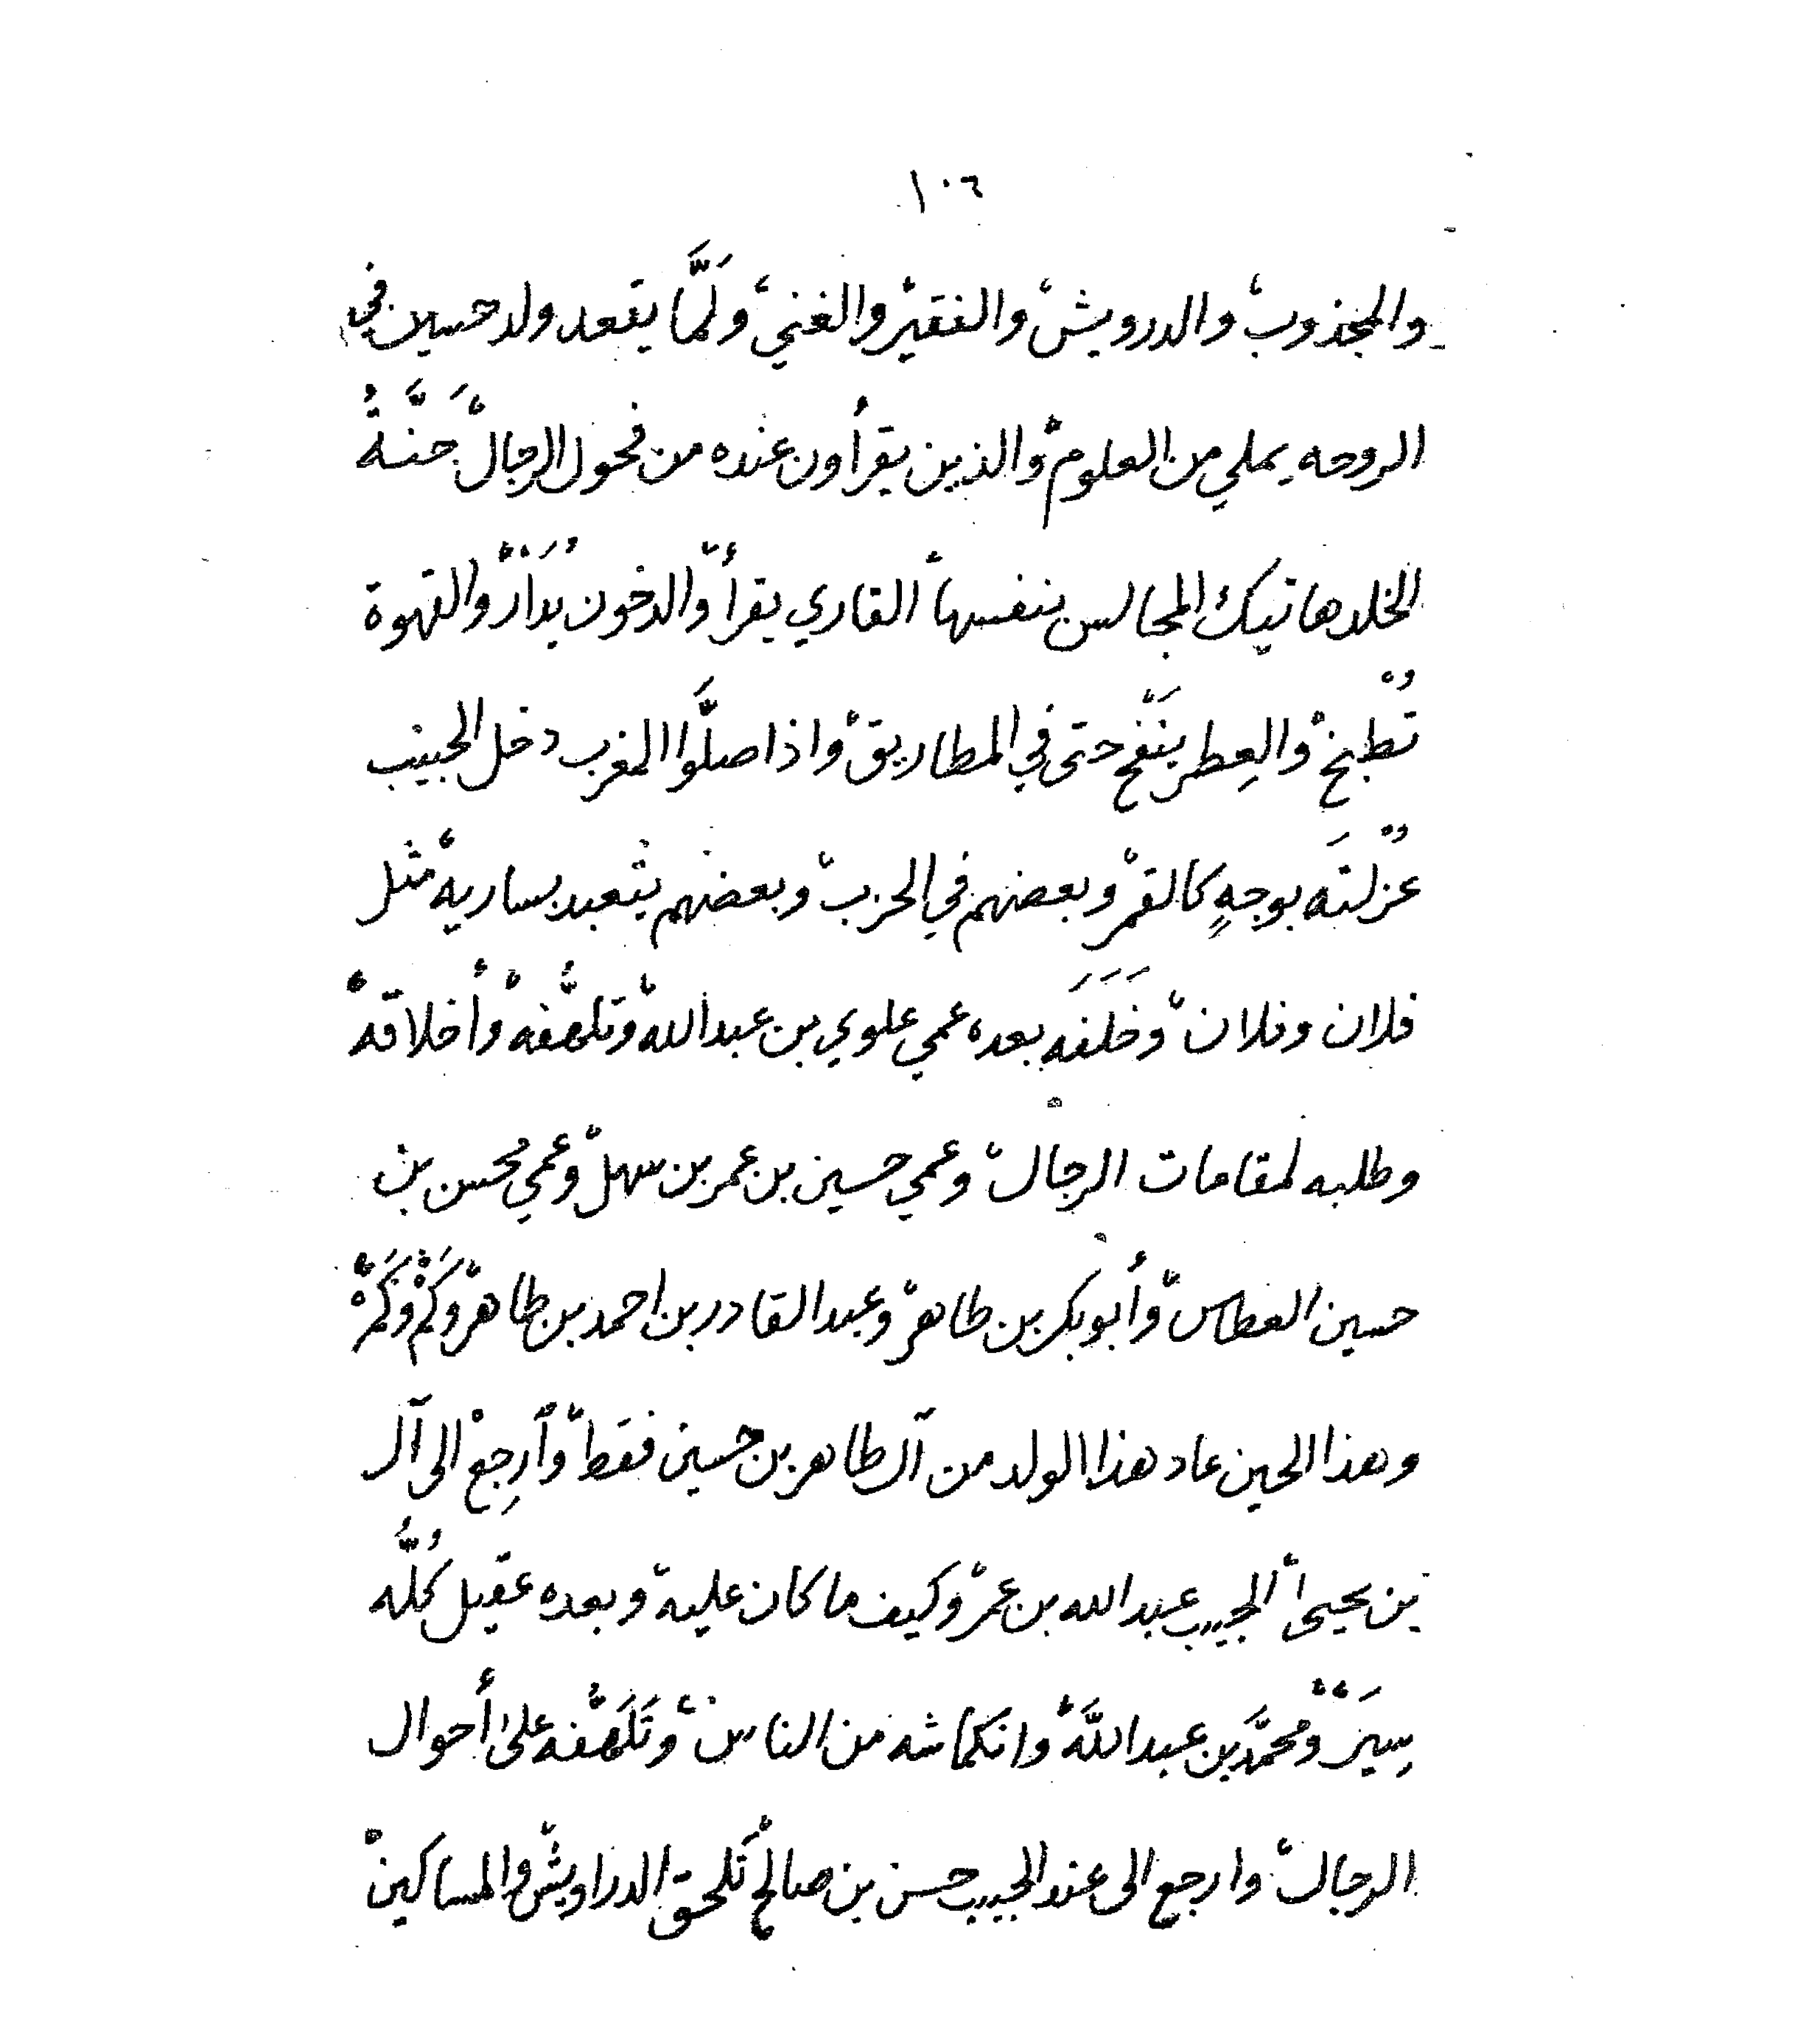 ١٠٦
والمجذوب، والدرويش، والفقير، والغني، ولَمَّا يقعد ولد حسين في
الروحه يملي من العلوم، والذين يقرأون عنده من فحول الرجال، جَنَّةُ
الخلد هاتيك المجالس بنفسها، القاري يقرأ، والدخون يُدَار، والقهوة
تُطبخ، والعِطر يَنْفح حتى في المطاريق، واذا صلَّوا المغرب دخل الحبيب
عُزْلتَه بوجهٍ كالقمر، وبعضهم في الحزب، وبعضهم يتعبد بساريه، مثل
فلان وفلان، وخَلَفَه بعده عمي علوي بن عبدالله، وتلهُّفه، وأخلاقه،
وطلبه لمقامات الرجال، وعمي حسين بن عمر بن سهل، وعمي مُحسن بن
حسين العطاس، وأبوبكر بن طاهر، وعبدالقادر بن احمد بن طاهر، وكَمْ، وكَمْ،
وهذا الحين عاد هذا الولد من آل طاهر بن حسين فقط، وٱرجِعْ الى آل
بن يحيى، الحبيب عبدالله بن عمر، وكيف ما كان عليه، وبعده عقيل كُلُّه
سِيَرْ، ومحمَّد بن عبداللَّه، وانكماشه من الناس، وتَلَهُّفه على أحوال
الرجال، وارجع الى عند الحبيب حسن بن صالح، تَلحق الدراويش، والمساكين،